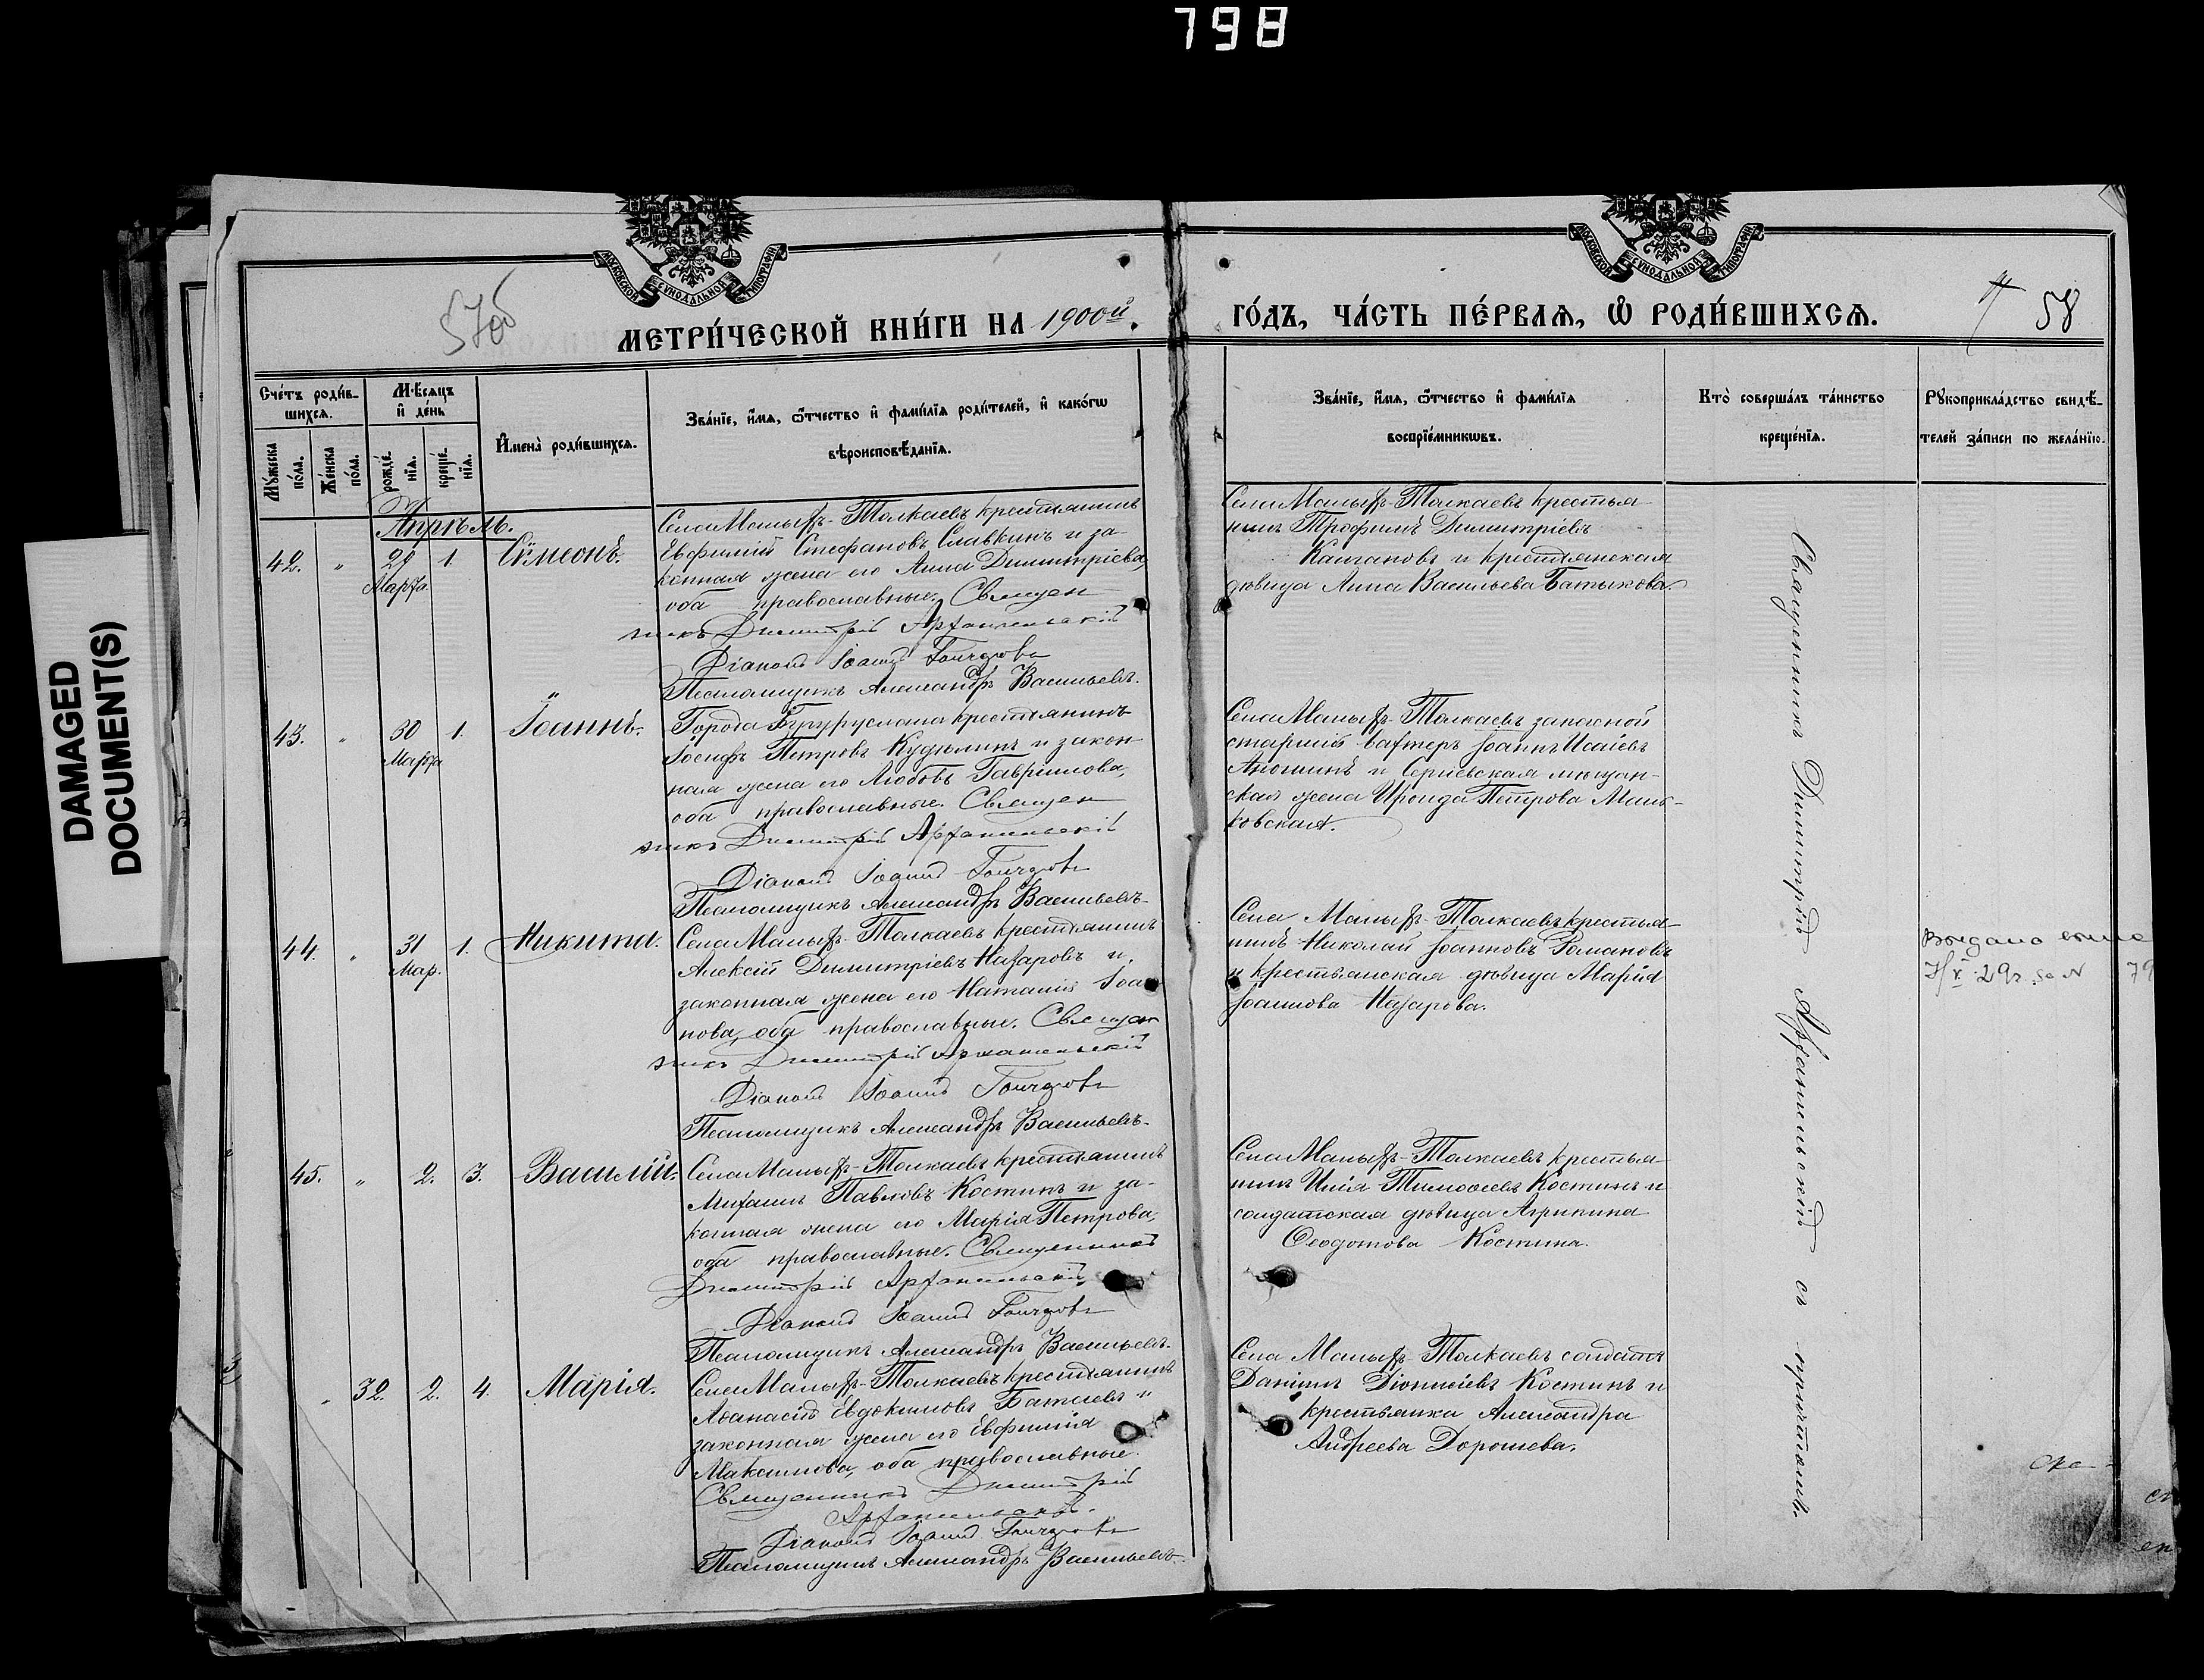 798
DAMAGED
DOCUMENT(S)
МОСКОВСКОЙ СУНОДАЛЬНОЙ ТИПОГРАФІИ
МОСКОВСКОЙ СУНОДАЛЬНОЙ ТИПОГРАФІИ
57об
МЕТРИ́ЧЕСКОЙ КНИ́ГИ НА 1900й.
ГО́ДЪ, ЧА́СТЬ ПЕ́РВАѦ, Ѡ҆ РОДИ́ВШИХСѦ.
58
Сче́тъ роди́в-
шихсѧ.
Мꙋ́жеска по́ла.
Же́нска по́ла.
Мѣ́сѧцъ
и҆ де́нь
рожде́нїѧ.
креще́нїѧ.
И҆мена̀ роди́вшихсѧ.
Зва́нїе, и҆́мѧ, ѻ҆́тчество и҆ фами́лїѧ роди́телей, и҆ како́гѡ
вѣроисповѣ́данїѧ.
Зва́нїе, и҆́мѧ, ѻ҆́тчество и҆ фами́лїѧ
воспрїе́мникѡвъ.
Кто̀ соверша́лъ та́инство
креще́нїѧ.
Рꙋкоприкла́дство свидѣ́-
телей за́писи по жела́нїю.
Апрѣль.
42. " 29 Марта 1. Сѵмеонъ.
Села Малыхъ-Толкаевъ крестьянинъ
Евфимій Стефановъ Славкинъ и за-
конная жена его Анна Димитріева,
оба православные. Священ-
никъ Димитрій Архангельскій
Діаконъ Іоаннъ
Псаломщикъ Александръ Васильевъ.
Села Малыхъ-Толкаевъ крестья-
нинъ Трофимъ Димитріевъ
Каштановъ и крестьянская
дѣвица Анна Васильева Батыкова.
43. " 30 Марта 1. Іоаннъ.
Города Бугуруслана крестьянинъ
Іосифъ Петровъ Кудюлинъ и закон-
ная жена его Любовь Гавріилова,
оба православные. Священ-
никъ Димитрій Архангельскій
Діаконъ Іоаннъ
Псаломщикъ Александръ Васильевъ.
Села Малыхъ-Толкаевъ запасной
старшій вахтеръ Іоаннъ Исаіевъ
Аношинъ и Сергіевская мѣщан-
ская жена Ираида Петрова Мань-
ковская.
44. " 31 Мар. 1. Никита.
Села Малыхъ-Толкаевъ крестьянинъ
Алексій Димитріевъ Назаровъ и
законная жена его Наталія Іоан-
нова, оба православные. Священ-
никъ Димитрій Архангельскій
Діаконъ Іоаннъ
Псаломщикъ Александръ Васильевъ.
Села Малыхъ-Толкаевъ крестья-
нинъ Николай Іоанновъ Романовъ
и крестьянская дѣвица Марія
Іоаннова Назарова.
Выдана
29г. за N 79
45. " 2. 3. Василій.
Села Малыхъ-Толкаевъ крестьянинъ
Михаилъ Павловъ Костинъ и за-
конная жена его Марія Петрова,
оба православные. Священникъ
Димитрій Архангельскій
Діаконъ Іоаннъ
Псаломщикъ Александръ Васильевъ.
Села Малыхъ-Толкаевъ крестья-
нинъ Илія Тимоѳеевъ Костинъ и
солдатская дѣвица Агрипина
Ѳеодотова Костина.
" 32. 2. 4. Марія.
Села Малыхъ-Толкаевъ крестьянинъ
Аѳанасій Евдокимовъ Батаевъ и
законная жена его Евфимія
Максимова, оба православные.
Священникъ Димитрій
Архангельскій.
Діаконъ Іоаннъ
Псаломщикъ Александръ Васильевъ.
Села Малыхъ-Толкаевъ солдатъ
Даніилъ Діонисіевъ Костинъ и
крестьянка Александра
Андреева Дорошева.
Священникъ Димитрій Архангельскій съ причтомъ.